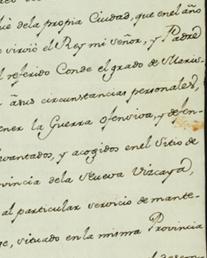 de la propia Ciudad, que en el año
sirvió el Rey mi señor, y Padre
referido Conde el grado de
a sus circunstancias personales,
la Guerra ofensiva, y
y acogidos en el Sitio de
de la Nueva Vizcaya,
al particular servicio de
situado en la misma Provincia